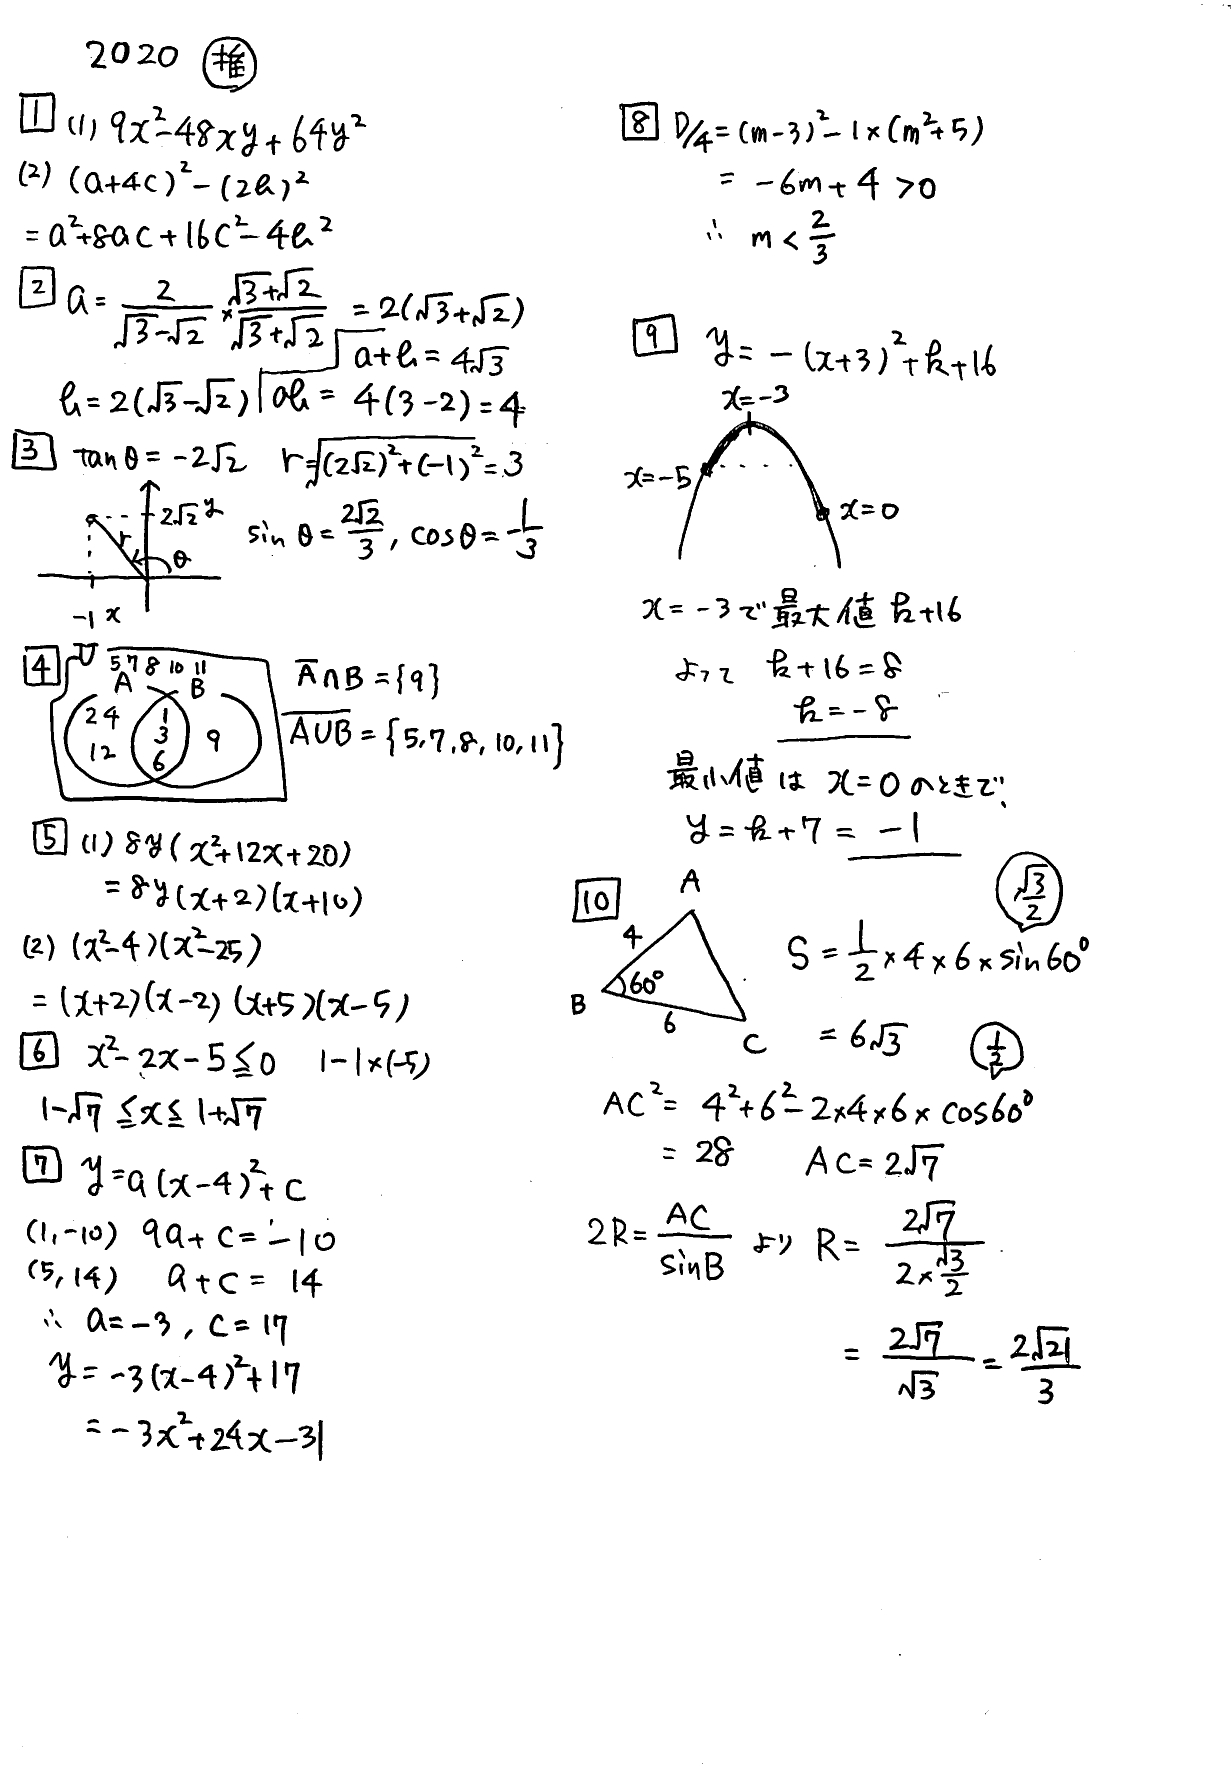 2020 推
1 (1) 9x²-48xy+64y²
(2) (a+4c)²-(2b)²
=a²+8ac+16c²-4b²
2 a= 2/(√3-√2) × (√3+√2)/(√3+√2) = 2(√3+√2)
a+b=4√3
b=2(√3-√2) ab= 4(3-2)=4
3 tanθ=-2√2 r=√((2√2)²+(-1)²)=3
2√2 y
sinθ=2√2/3, cosθ=-1/3
r θ
-1 x
4 U 5 7 8 10 11
A B
2 4 1 3 6 9
12
A̅∩B={9}
A∪B̅={5,7,8,10,11}
5 (1) 8y(x²+12x+20)
=8y(x+2)(x+10)
(2) (x²-4)(x²-25)
=(x+2)(x-2)(x+5)(x-5)
6 x²-2x-5≦0 1-1×(-5)
1-√7≦x≦1+√7
7 y=a(x-4)²+c
(1,-10) 9a+c=-10
(5,14) a+c=14
∴ a=-3, c=17
y=-3(x-4)²+17
=-3x²+24x-31
8 D/4=(m-3)²-1×(m²+5)
= -6m+4>0
∴ m<2/3
9 y=-(x+3)²+k+16
x=-3
x=-5
x=0
x=-3で最大値k+16
よって k+16=8
k=-8
最小値は x=0のときで、
y=k+7=-1
10 A
4
60°
B
6
C
√3/2
S=1/2×4×6×sin60°
=6√3
1/2
AC²=4²+6²-2×4×6×cos60°
=28 AC=2√7
2R=AC/sinB より R= 2√7/(2×√3/2)
= 2√7/√3 = 2√21/3